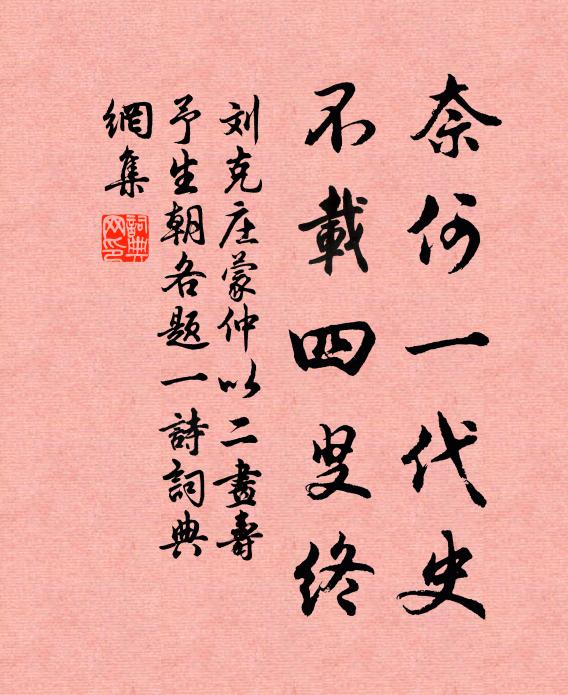 奈何一代史
不載四叟終
刘克庄蒙仲以二畫壽
予生朝各题一詩詞典
網集
詞典網印